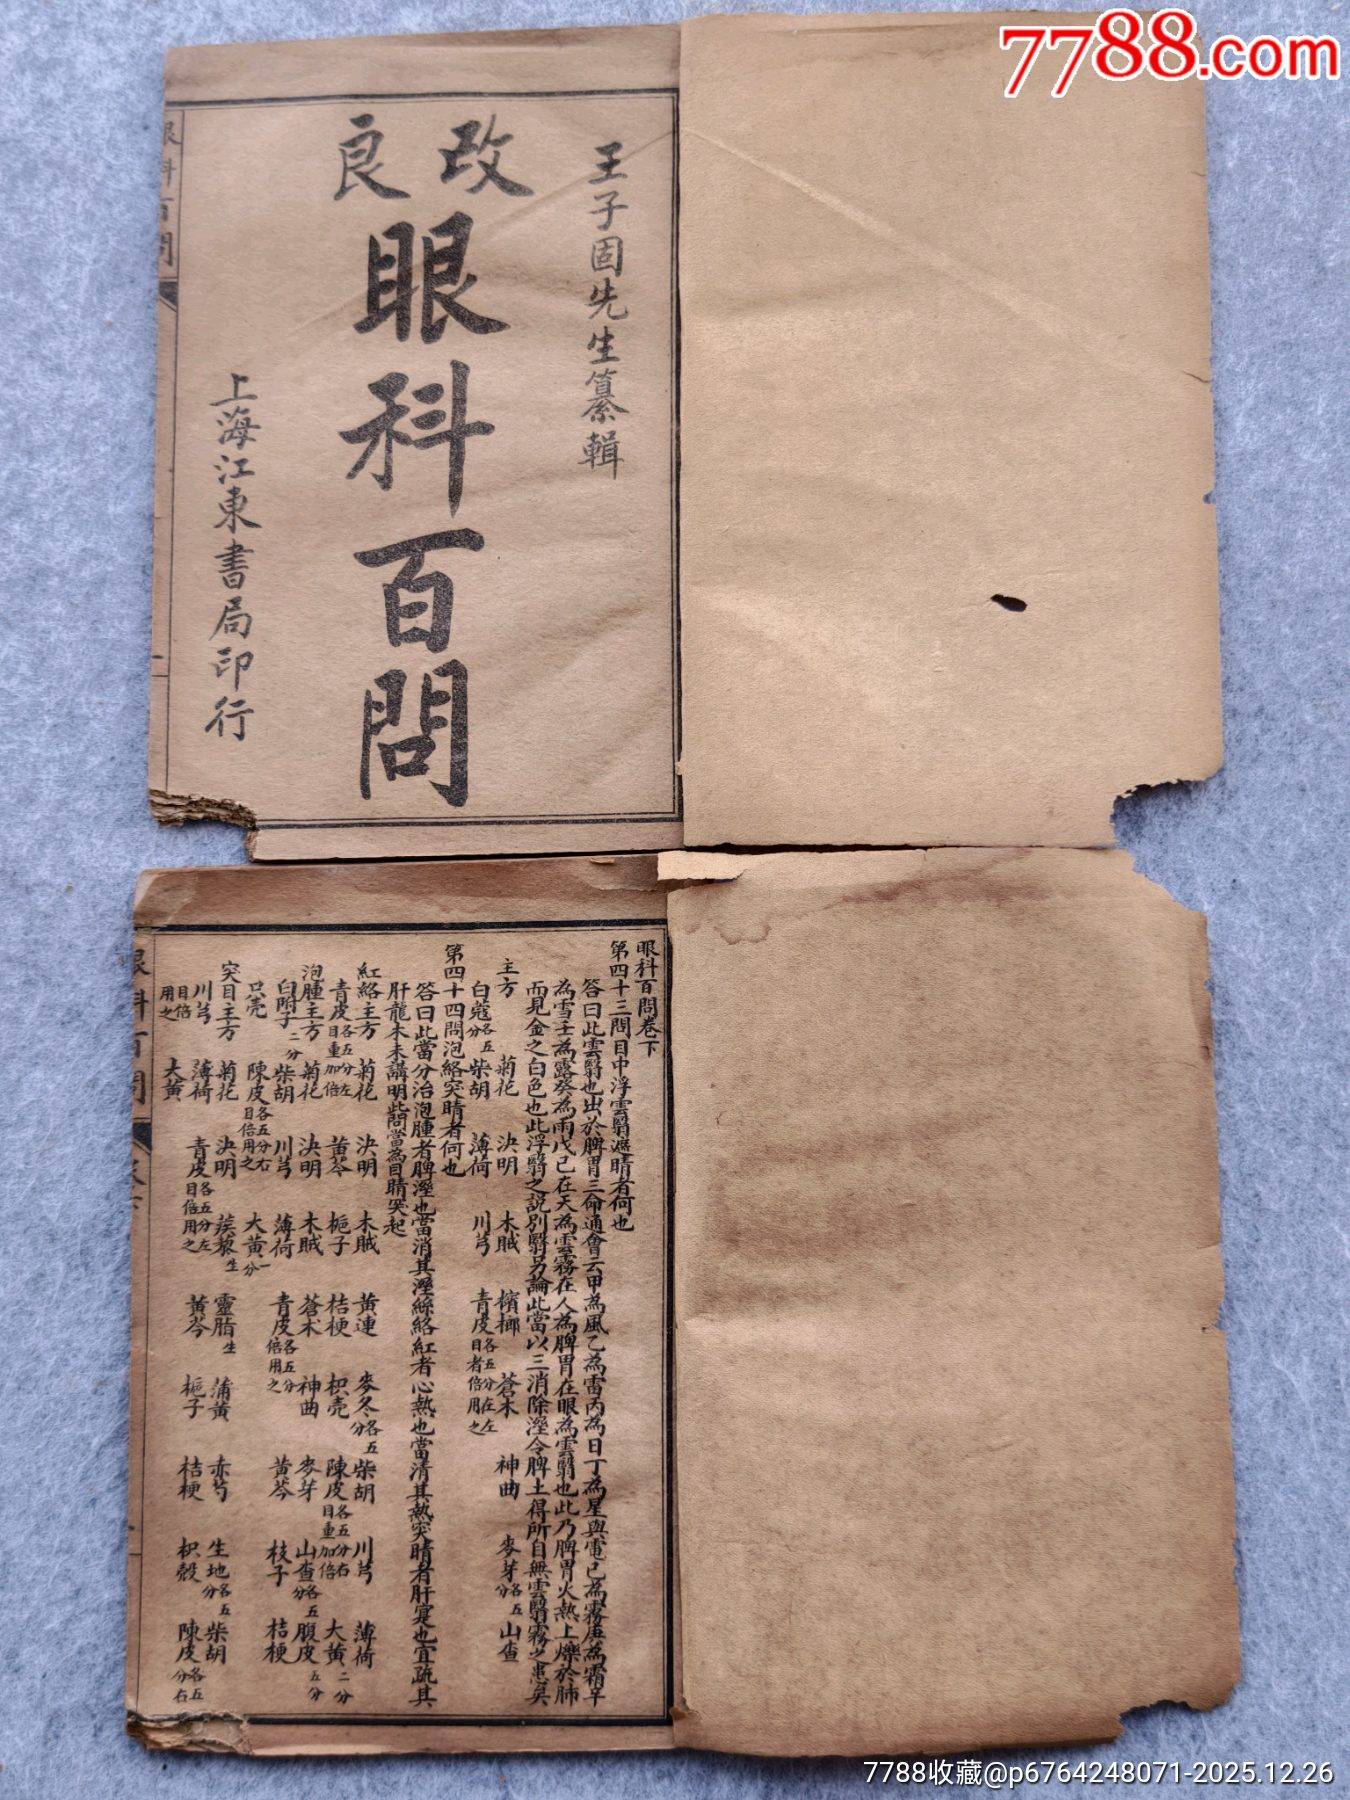 7788.com
王子固先生纂輯
改良
眼科百問
上海江東書局印行
眼科百問
眼科百問卷下
第四十三問目中浮雲翳遮睛者何也
答曰此雲翳也出於脾胃三命通會云甲為風乙為雷丙為日丁為星與電己為霧庚為霜辛
為雪壬為露癸為雨戊己在天為雲霧在人為脾胃在眼為雲翳也此乃脾胃火熱上爍於肺
而見金之白色也此浮翳之說別翳另論此當以三消除溼令脾土得所自無雲翳霧之患矣
主方 菊花 決明 木賊 檳榔 蒼朮 神曲 麥芽各五分 山查
白蔻各五分 柴胡 薄荷 川芎 青皮各五分在左目者倍用之
第四十四問泡絡突睛者何也
答曰此當分治泡腫者脾溼也當消其溼絲絡紅者心熱也當清其熱突睛者肝寔也宜疏其
肝龍木未講明此問當為目睛突起
紅絡主方 菊花 決明 木賊 黃連 麥冬各五分 柴胡 川芎 薄荷
青皮各五分左目重加倍 黃芩 梔子 桔梗 枳壳 陳皮各五分右目重加倍 大黃二分
泡腫主方 菊花 決明 木賊 蒼朮 神曲 麥芽 山查各五分 腹皮五分
白附子二分 柴胡 川芎 薄荷 青皮各五分倍用之 黃芩 枝子 桔梗
只壳 陳皮各五分右目倍用之 大黃一分
突目主方 菊花 決明 蒺藜生 靈脂生 蒲黃 赤芍 生地各五分 柴胡
川芎 薄荷 青皮各五分左目倍用之 黃芩 梔子 桔梗 枳殼 陳皮各五分右
目倍用之 大黃
眼科百問
7788收藏@p6764248071-2025.12.26